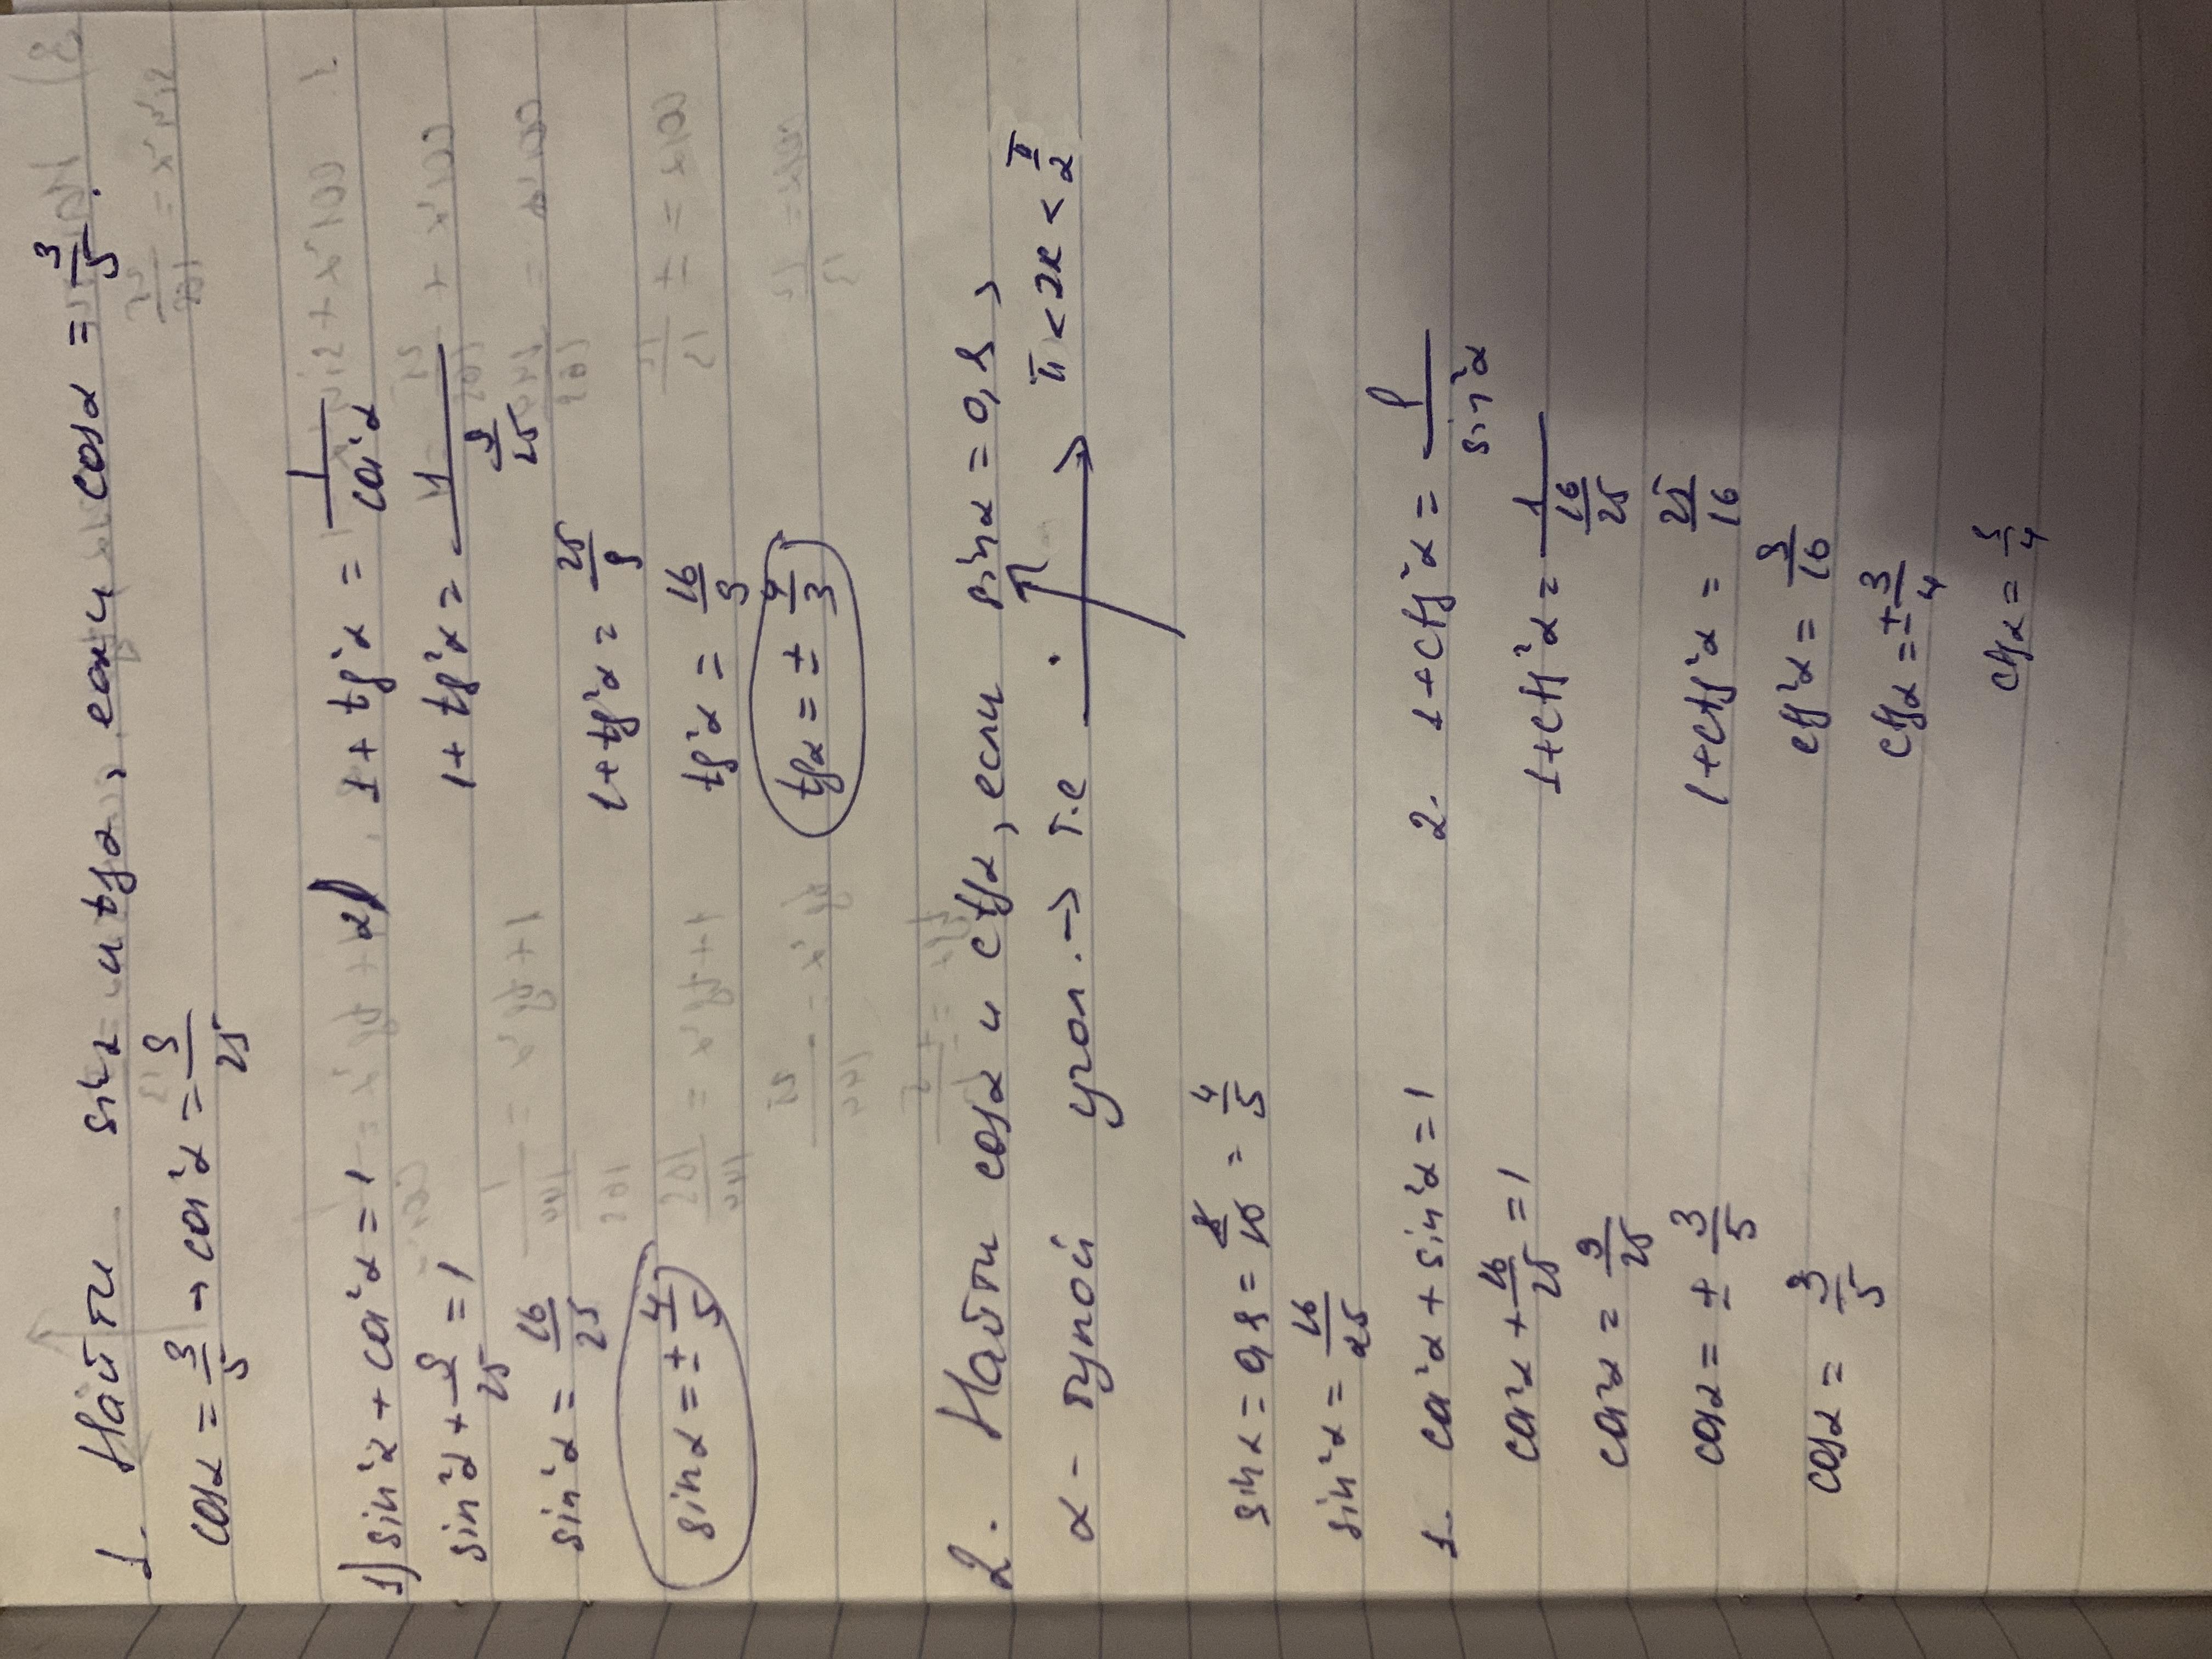 1. Найти sinα и tgα, если cosα = 3/5.
cosα = 3/5 → cos²α = 9/25
1) sin²α + cos²α = 1
sin²α + 9/25 = 1
sin²α = 16/25
sinα = ± 4/5
2) 1 + tg²α = 1/cos²α
1 + tg²α = 1/(9/25)
1 + tg²α = 25/9
tg²α = 16/9
tgα = ± 4/3
2. Найти cosα и ctgα, если sinα = 0,8,
α - тупой угол. → т.е π < 2π < π/2
sinα = 0,8 = 8/10 = 4/5
sin²α = 16/25
1. cos²α + sin²α = 1
cos²α + 16/25 = 1
cos²α = 9/25
cosα = ± 3/5
cosα = 3/5
2. 1 + ctg²α = 1/sin²α
1 + ctg²α = 1/(16/25)
1 + ctg²α = 25/16
ctg²α = 9/16
ctgα = ± 3/4
ctgα = 3/4